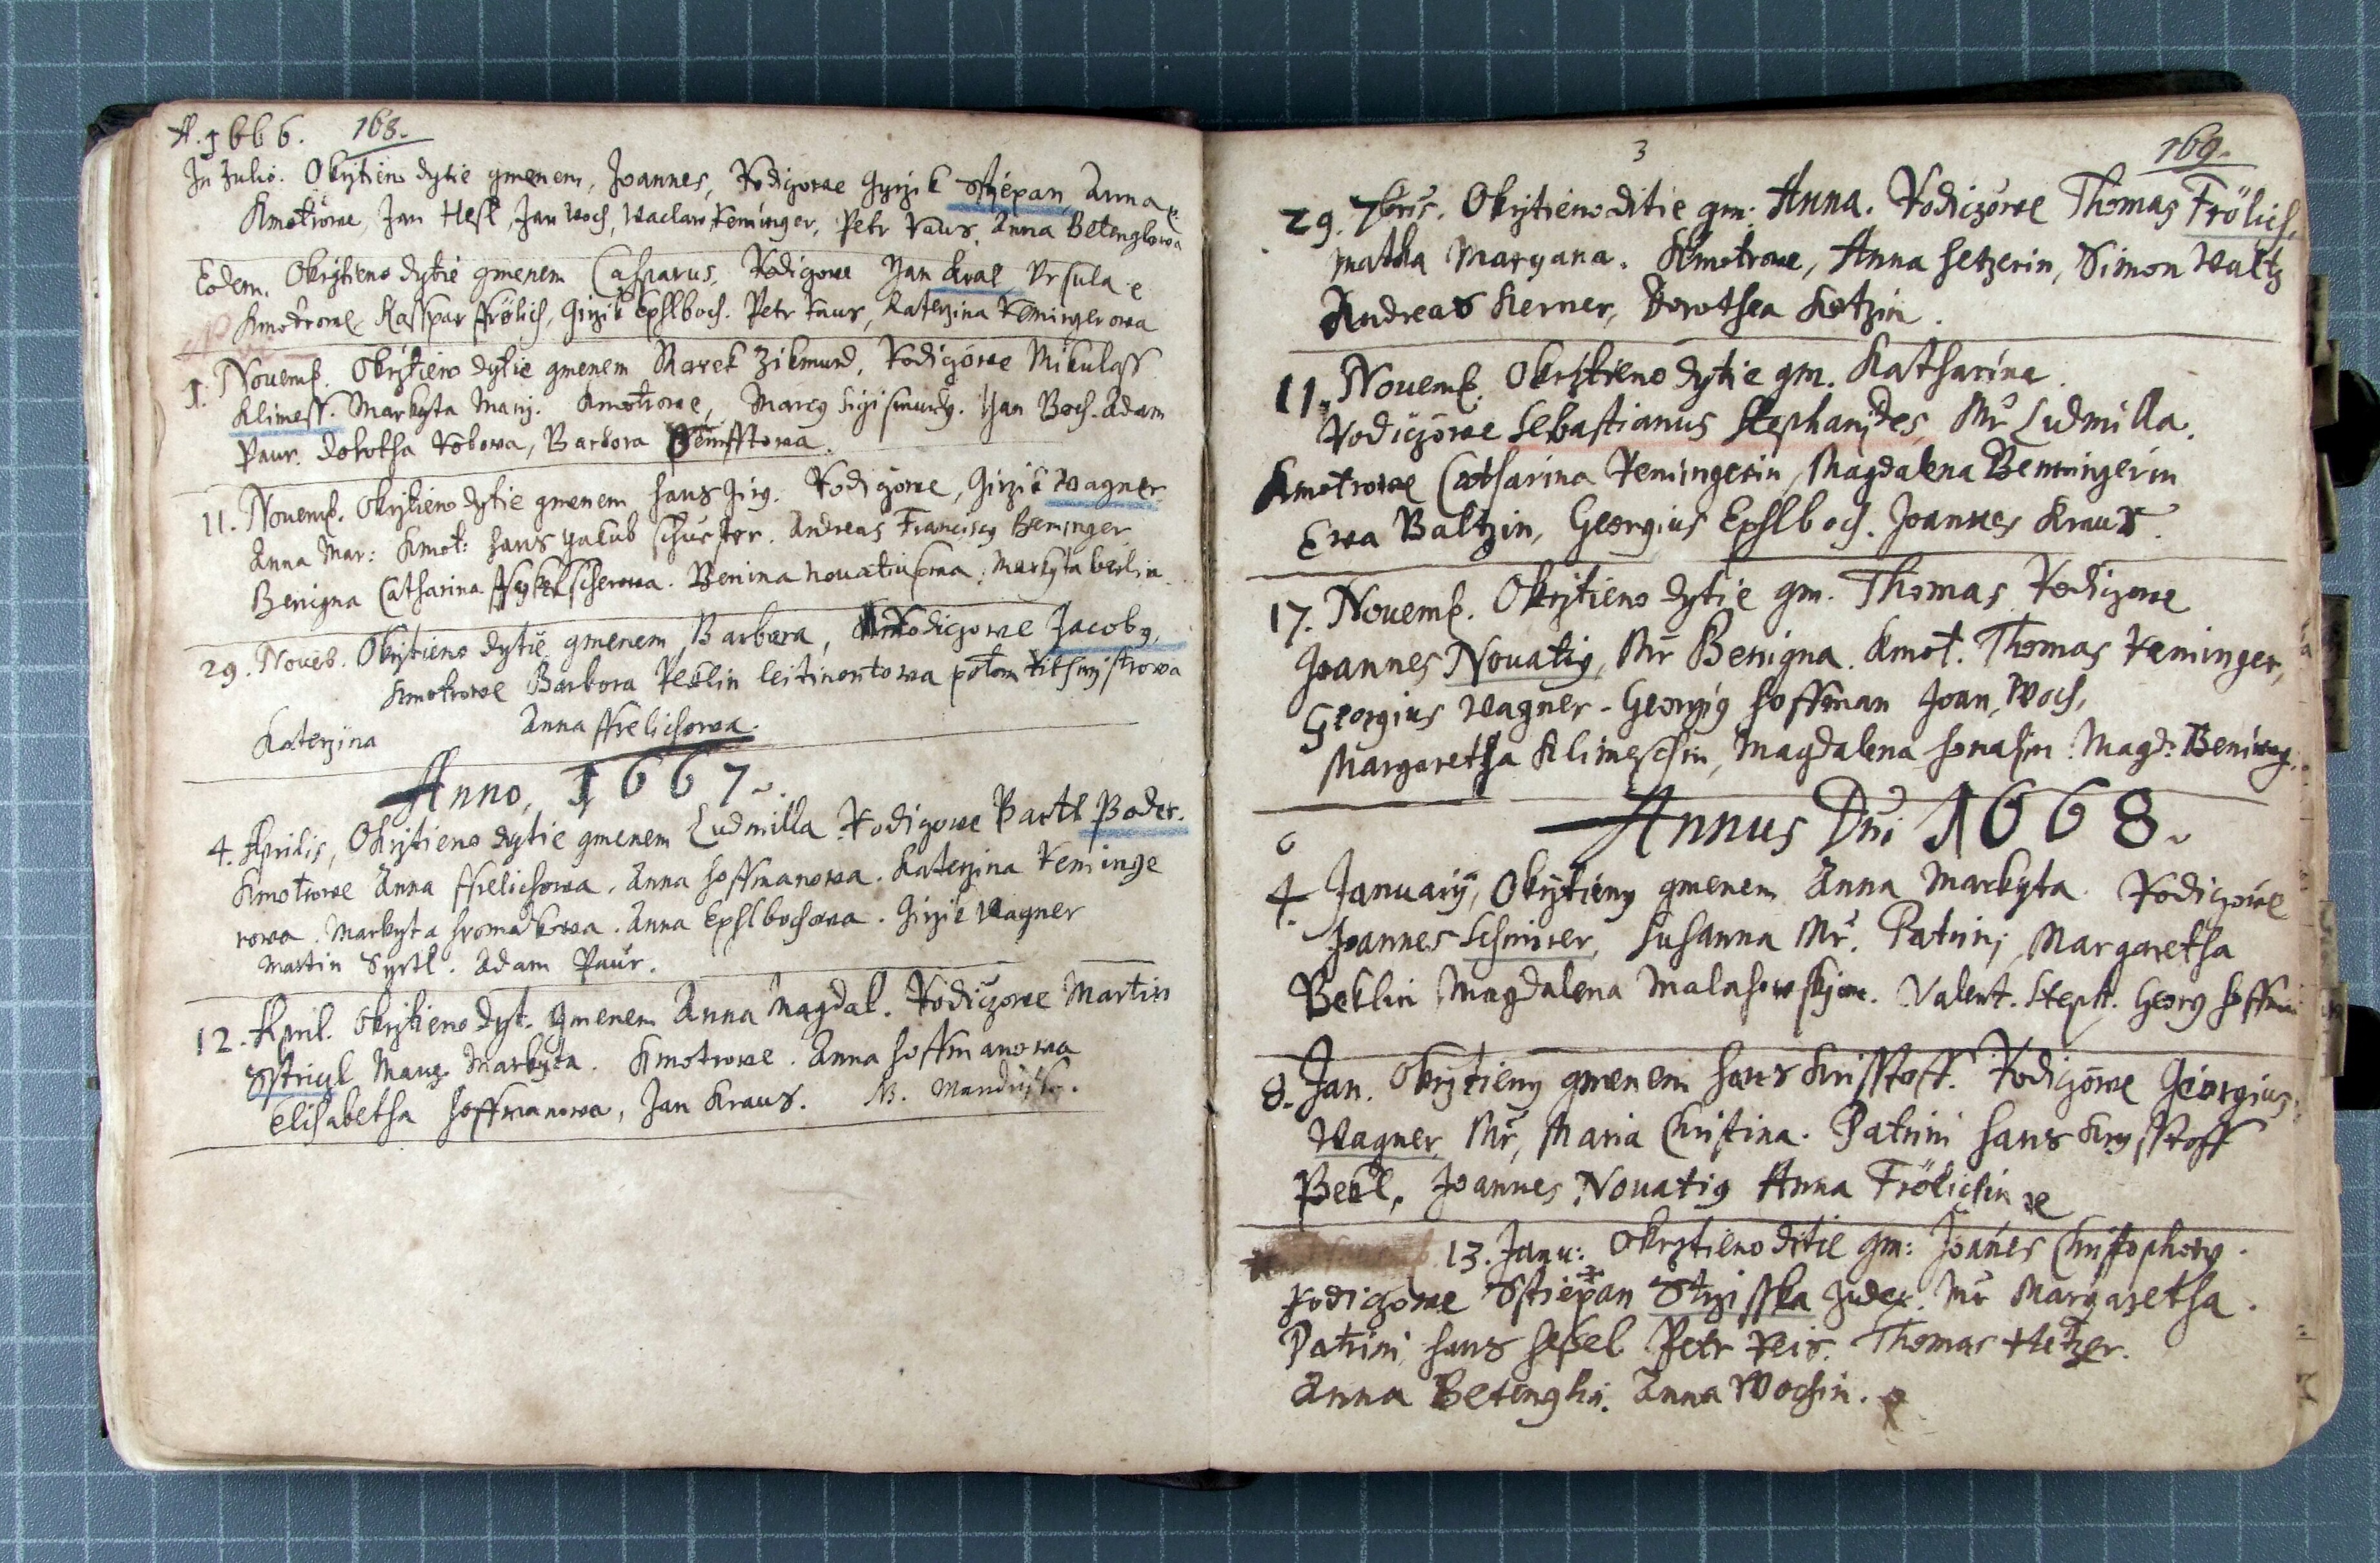 A. 1666. 168.
In Julio. Okrztieno dytie gmenem, Joannes, Rodiczowe Gyrzik Sstiepan, Anna
Kmotrowe, Jan Hesl, Jan Woch, Waclaw Reminger, Petr Paur, Anna Betenglowa
Eodem. Okrztieno dytie gmenem Casparus, Rodiczowe Yan Kral, Ursula
Kmotrowe Kasspar Frölich, Girzik Epslboch. Petr Paur, Katerzina Remingerowa
1. Novemb. Okrztieno dytie gmenem Marek Zikmund, Rodiczowe Mikulass
Klimess. Markyta Manz. Kmotrowe, Marcg Sigismundg. Yan Boch. Adam
Paur. Dorotha Kobowa, Barbora
11. Novemb. Okrztieno dytie gmenem Hans Jirg. Rodiczowe, Girzik Wagner
Anna Mar: Kmot: Hans Yakub Schuester. Andreas Franciscg Beninger
Benigna Catharina Markyta
29. Noveb. Okrztieno dytie gmenem Barbara, Rodiczowe Jacobg,
Kmotrowe Barbora Peklin leitinontowa potom
Katerzina Anna Ffrelichowa.
Anno, 1667.
4. Aprilis, Okrztieno dytie gmenem Ludmilla Rodiczowe Partl Boder.
Kmotrowe Anna Ffrelichowa. Anna Hoffmanowa. Katerzina Reminge
rowa. Markyta Hromadkowa. Anna Epslbochowa. Girzik Wagner
Martin Syrtl. Adam Paur.
12. April. Okrztieno dyt. gmenem Anna Magdal. Rodiczowe Martin
Sstrigl Manz. Markyta. Kmotrowe. Anna Hoffmanowa
Elisabetha Hoffmanowa, Jan Kraus.
3 169.
29. 7bris. Okrztieno ditie gm: Anna. Rodiczowe Thomas Frölich,
matka Maryana. Kmotrowe, Anna Hetzerin, Simon Waltz
Andreas Kerner, Dorothea Kotzin.
11. Novemb. Okrztieno dytie gm. Katharina.
Rodiczowe Sebastianus Stephanides, Mr Ludmilla.
Kmotrowe Catharina Remingerin, Magdalena Benningerin
Ewa Baltzin, Georgius Epslboch. Joannes Kraus.
17. Novemb. Okrztieno dytie gm. Thomas Rodiczowe
Joannes Novatig, Mr Benigna. Kmot. Thomas Reminger,
Georgius Wagner. Georgig Hoffman Joan, Woch,
Margaretha Klimeschin, Magdalena Magd: Bening.
Annus Dni 1668.
4. Januarij, Okrztieny gmenem Anna Markyta. Rodiczowe
Joannes Susanna Mr. Patrinj Margaretha
Beklin Magdalena Valent. Steph. Georg Hoffman
8. Jan. Okrztieny gmenem Hans Krisstoff. Rodiczowe Georgius
Wagner, Mr, Maria Christina. Patrini Hans Krysstoff
Bekl, Joannes Novatig Anna Frölichin
13. Janu: Okrztieno ditie gm: Joanes Christophorg.
Rodiczowe Sstiepan Strzisska Judex. Mr Margaretha.
Patrini Hans Hessel Petr Reis. Thomas Hetzer.
Anna Betenglin. Anna Wochin.